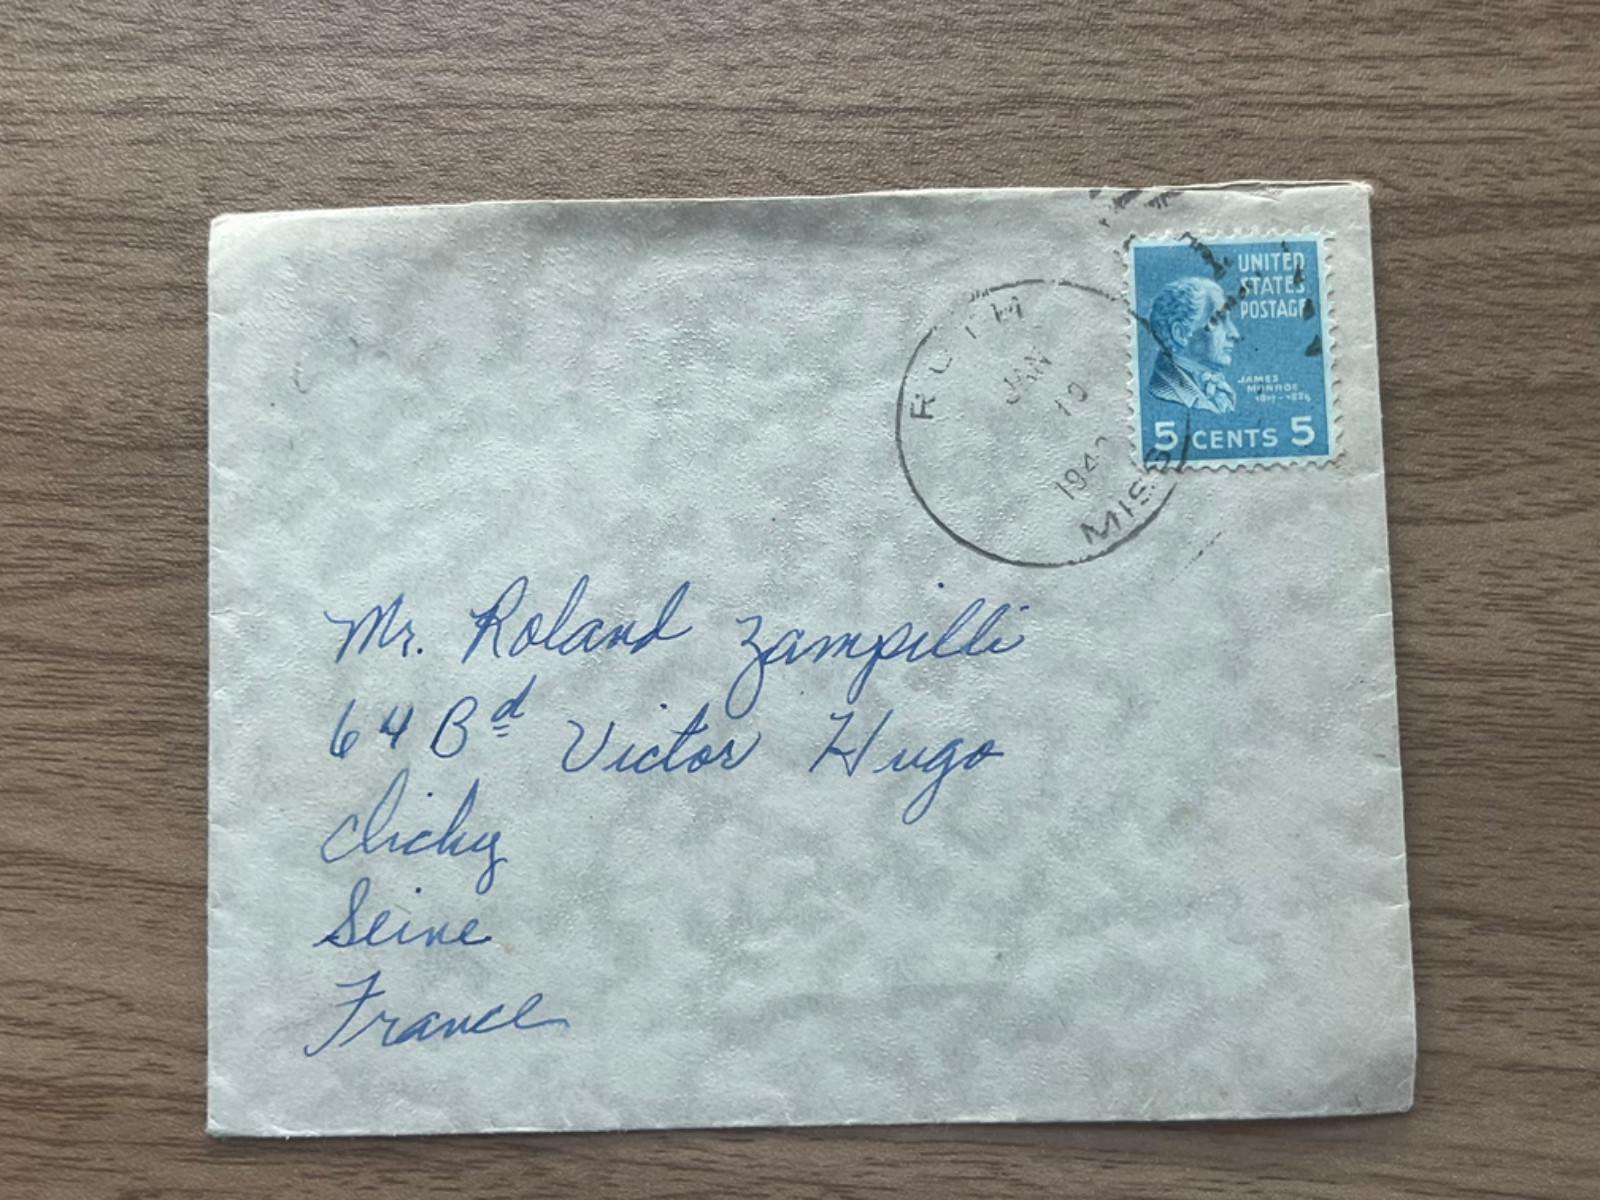 UNITED
STATES
POSTAGE
JAMES
MONROE
5 CENTS 5
RUTH
JAN
10
MISS
Mr. Roland Zampilli
64 Bd Victor Hugo
Clichy
Seine
France